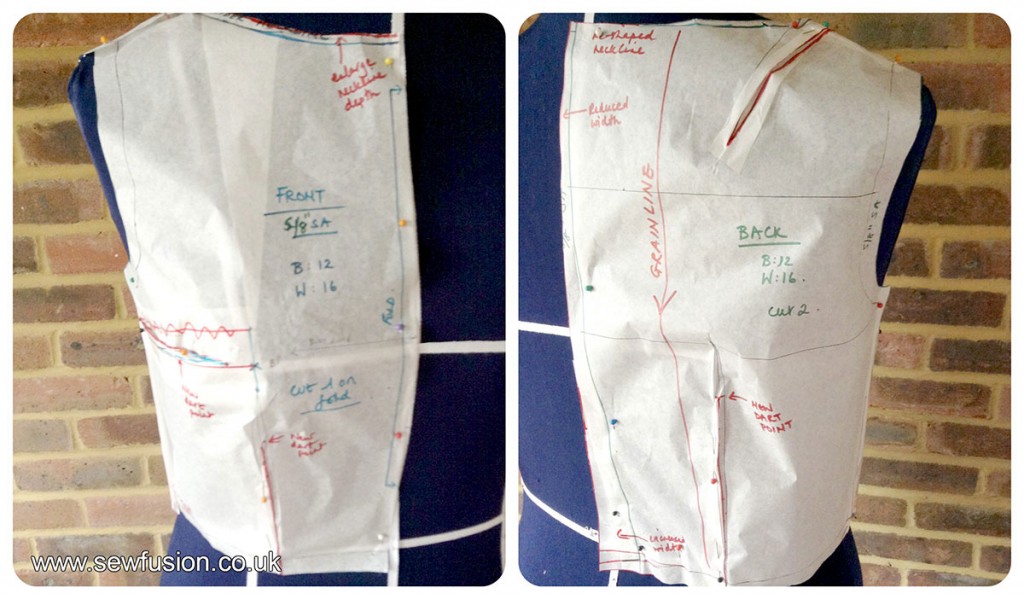 enlarge
neckline
depth
FRONT
5/8" SA
B: 12
W: 16
Fold
cut 1 on
fold
new
dart
point
New
dart
point
www.sewfusion.co.uk
re-shaped
neckline
Reduced
width
GRAINLINE
BACK
B: 12
W: 16.
cut 2.
5/8" SA
NEW
DART
POINT
width